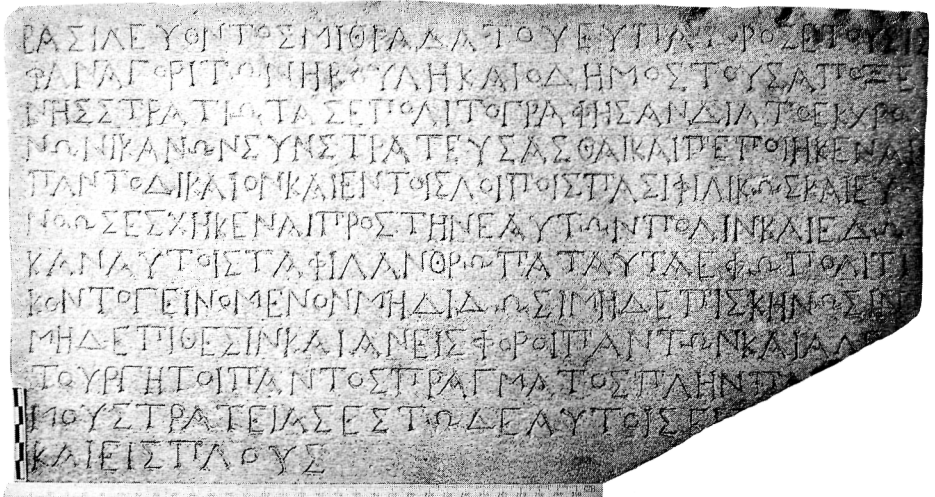 ΒΑΣΙΛΕΥΟΝΤΟΣΜΙΘΡΑΔΑΤΟΥΕΥΠΑΤΟΡΟΣΕΤΟΥΣ
ΦΑΝΑΓΟΡΙΤΩΝΗΒΟΥΛΗΚΑΙΟΔΗΜΟΣΤΟΥΣΑΠΟΞΕ
ΝΗΣΣΤΡΑΤΙΩΤΑΣΕΠΟΛΙΤΟΓΡΑΦΗΣΑΝΔΙΑΤΟΕΚΥΡΟ
ΝΩΝΙΚΑΝΩΝΣΥΝΣΤΡΑΤΕΥΣΑΣΘΑΙΚΑΙΠΕΠΟΙΗΚΕΝΑΙ
ΠΑΝΤΟΔΙΚΑΙΟΝΚΑΙΕΝΤΟΙΣΛΟΙΠΟΙΣΠΑΣΙΦΙΛΙΚΩΣΚΑΙΕΥ
ΝΟΩΣΕΣΧΗΚΕΝΑΙΠΡΟΣΤΗΝΕΑΥΤΩΝΠΟΛΙΝΚΑΙΕΔΩ
ΚΑΝΑΥΤΟΙΣΤΑΦΙΛΑΝΘΡΩΠΑΤΑΥΤΑΕΦΩΠΟΛΙΤΙ
ΚΟΝΤΟΓΕΙΝΟΜΕΝΟΝΜΗΔΙΔΩΣΙΜΗΔΕΠΙΣΚΗΝΩΣΙΝ
ΜΗΔΕΠΙΘΕΣΙΝΚΑΙΑΝΕΙΣΦΟΡΟΙΠΑΝΤΩΝΚΑΙΑΛ
ΤΟΥΡΓΗΤΟΙΠΑΝΤΟΣΠΡΑΓΜΑΤΟΣΠΛΗΝΠ
ΜΟΥΣΤΡΑΤΕΙΑΣΕΣΤΩΔΕΑΥΤΟΙΣΕ
ΚΑΙΕΙΣΠΛΟΥΣ